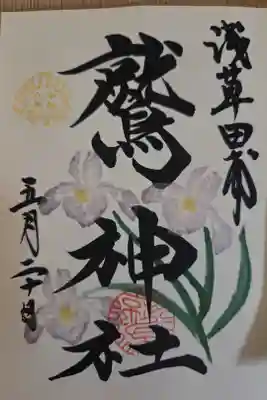 浅草田甫
鷲神社
五月二十日